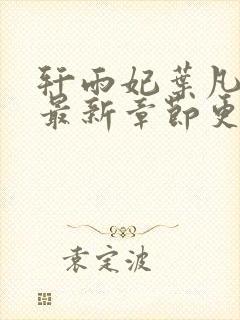 轩雨妃葉凡
最新章節更
袁定波